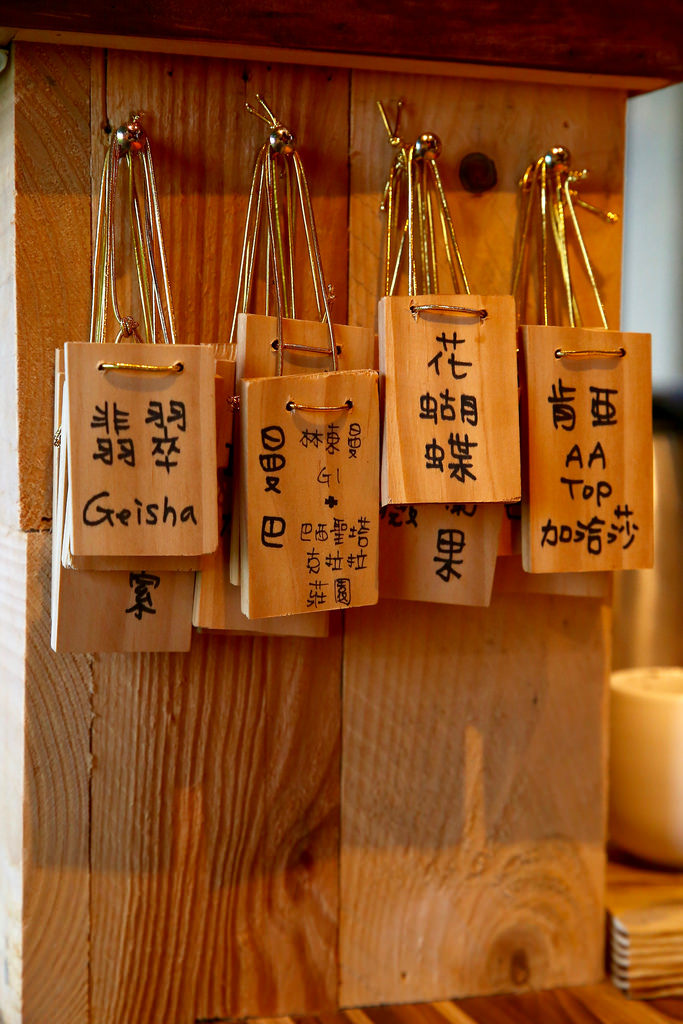 翡翠
Geisha
索
曼巴
林東曼
G1
+
巴西聖塔
克拉拉
莊園
花蝴蝶
果
肯亞
AA
TOP
加洽莎